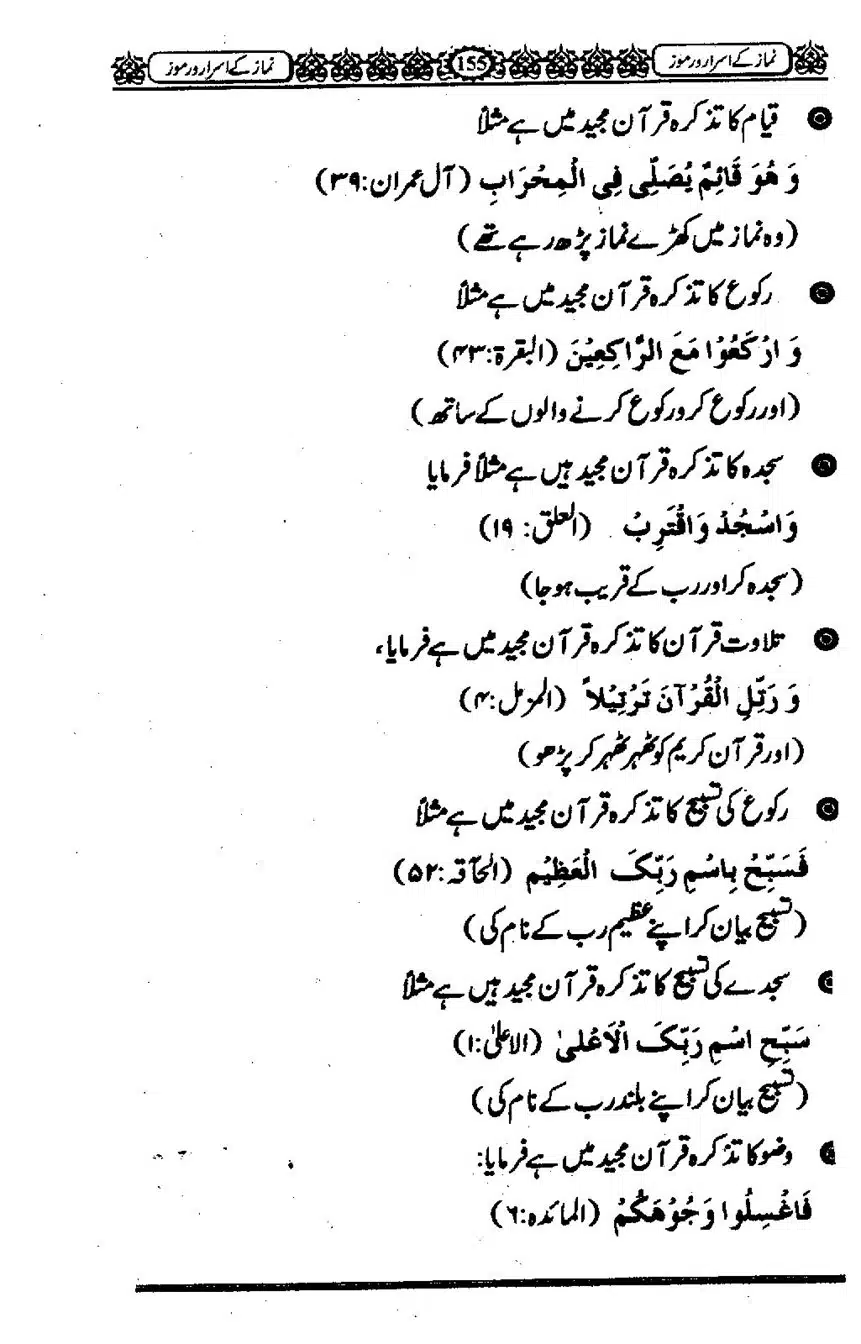 نماز کے اسرار و رموز
155
نماز کے اسرار و رموز
قیام کا تذکرہ قرآن مجید میں ہے مثلاً
وَ هُوَ قَائِمٌ يُصَلِّى فِى الْمِحْرَابِ (آل عمران:۳۹)
(وہ نماز میں کھڑے نماز پڑھ رہے تھے)
رکوع کا تذکرہ قرآن مجید میں ہے مثلاً
وَ ارْكَعُوْا مَعَ الرَّاكِعِيْنَ (البقرة:۴۳)
(اور رکوع کرو رکوع کرنے والوں کے ساتھ)
سجدہ کا تذکرہ قرآن مجید ہیں ہے مثلاً فرمایا
وَاسْجُدْ وَاقْتَرِبْ (العلق: ۱۹)
(سجدہ کر اور رب کے قریب ہو جا)
تلاوت قرآن کا تذکرہ قرآن مجید میں ہے فرمایا،
وَ رَتِّلِ الْقُرْآنَ تَرْتِيْلاً (المزمل:۴)
(اور قرآن کریم کو ٹھہر ٹھہر کر پڑھو)
رکوع کی تسبیح کا تذکرہ قرآن مجید میں ہے مثلاً
فَسَبِّحْ بِاسْمِ رَبِّكَ الْعَظِيْمِ (الحآقہ:۵۲)
(تسبیح بیان کر اپنے عظیم رب کے نام کی)
سجدے کی تسبیح کا تذکرہ قرآن مجید ہیں ہے مثلاً
سَبِّحِ اسْمِ رَبِّكَ الْاَعْلىٰ (الاعلیٰ:۱)
(تسبیح بیان کر اپنے بلند رب کے نام کی)
وضو کا تذکرہ قرآن مجید میں ہے فرمایا:
فَاغْسِلُوا وَجُوْهَكُمْ (المائدہ:۶)